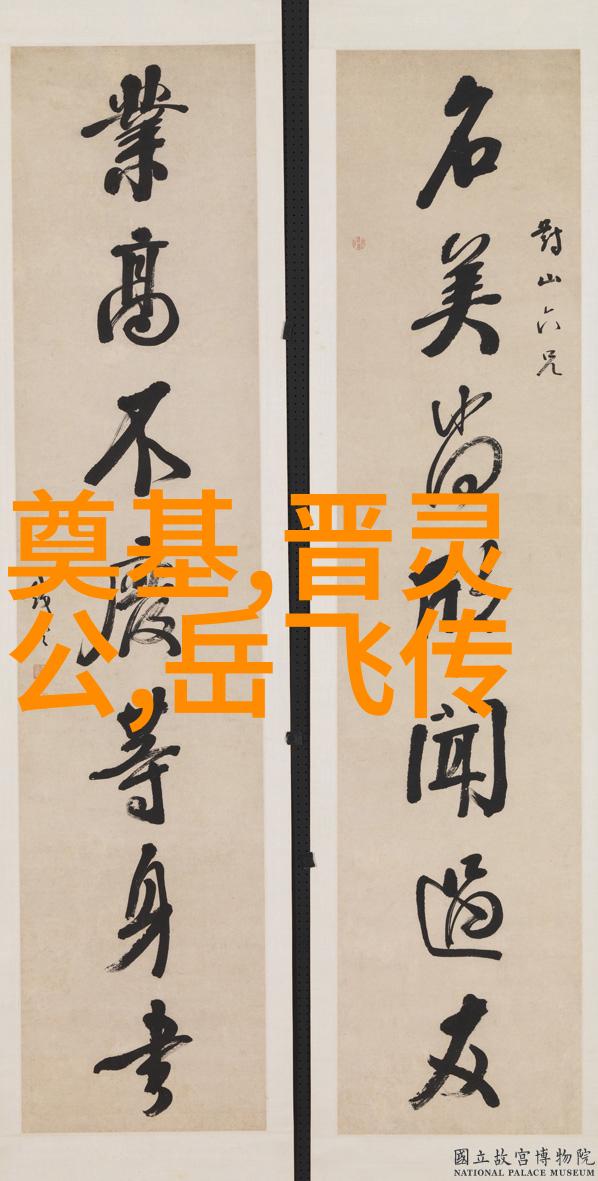 對山六兄
名美尚
聞過友
業高不廢等身書
奠基,晋灵
公,岳飞传
國立故宮博物院
NATIONAL PALACE MUSEUM